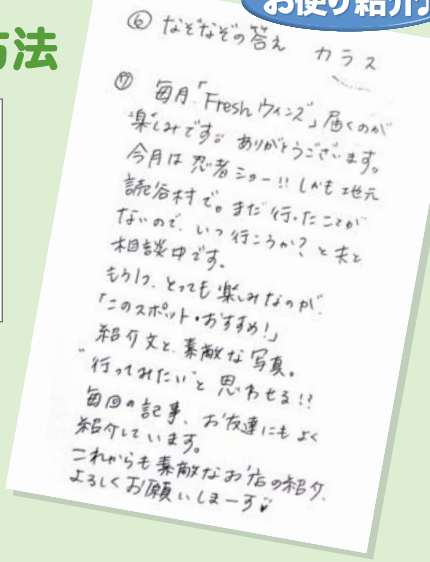 方法
お便り紹介
⑥ なぞなぞの答え カラス
⑦ 毎月「Freshウィンズ」届くのが
楽しみです。ありがとうございます。
今月は忍者ショー!! しかも地元
読谷村で。まだ行ったことが
ないので、いつ行こうか?と夫と
相談中です。
もう1つ、とっても楽しみなのが、
「このスポット・おすすめ!」
紹介文と、素敵な写真。
"行ってみたい"と思わせる!?
毎回の記事、お友達にもよく
紹介しています。
これからも素敵なお店の紹介、
よろしくお願いしまーす♥